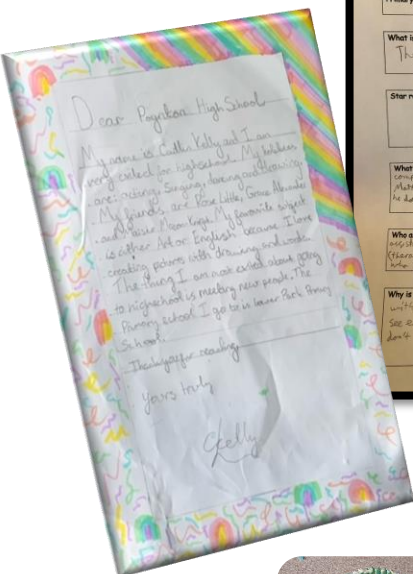 Dear Poynton High School
My name is Caitlin Kelly and I am
very exited for highschool. My hobbies
are: acting, singing, dancing and drawing.
My friends are Rose Little, Grace Alexander
and Maisie Mason Knight. My favourite subject
is either Art or English because I love
creating pictures with drawing and words.
The thing I am most exited about going
to highschool is meeting new people. The
Primary school I go to is lower Park Primary
School.
Thankyou for reading
Yours truly
CKelly
What is
Th
Star r
What
comp
he do
Who a
assist
Why is
with
see
don't